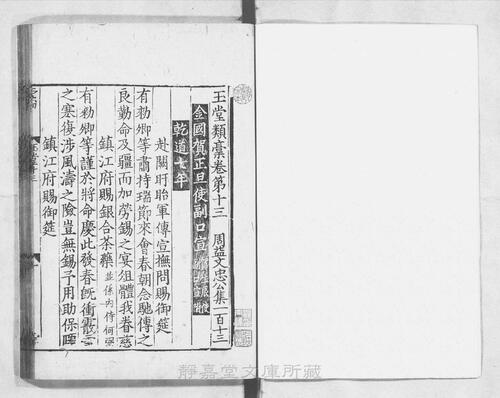 玉堂類藁卷第十三　周益文忠公集一百十三
金國賀正旦使副口宣
乾道七年
赴闕盱眙軍傳宣撫問賜御筵
有勑卿等肅持瑞節來會春朝念馳傳之
良勤命及疆而加勞錫之宴俎體我眷慈
鎮江府賜銀合茶藥並係內侍何
有勑卿等謹於將命慶此發春旣衝霰雪
之寒復涉風濤之險豈無錫予用助保
鎮江府賜御筵
靜嘉堂文庫所藏